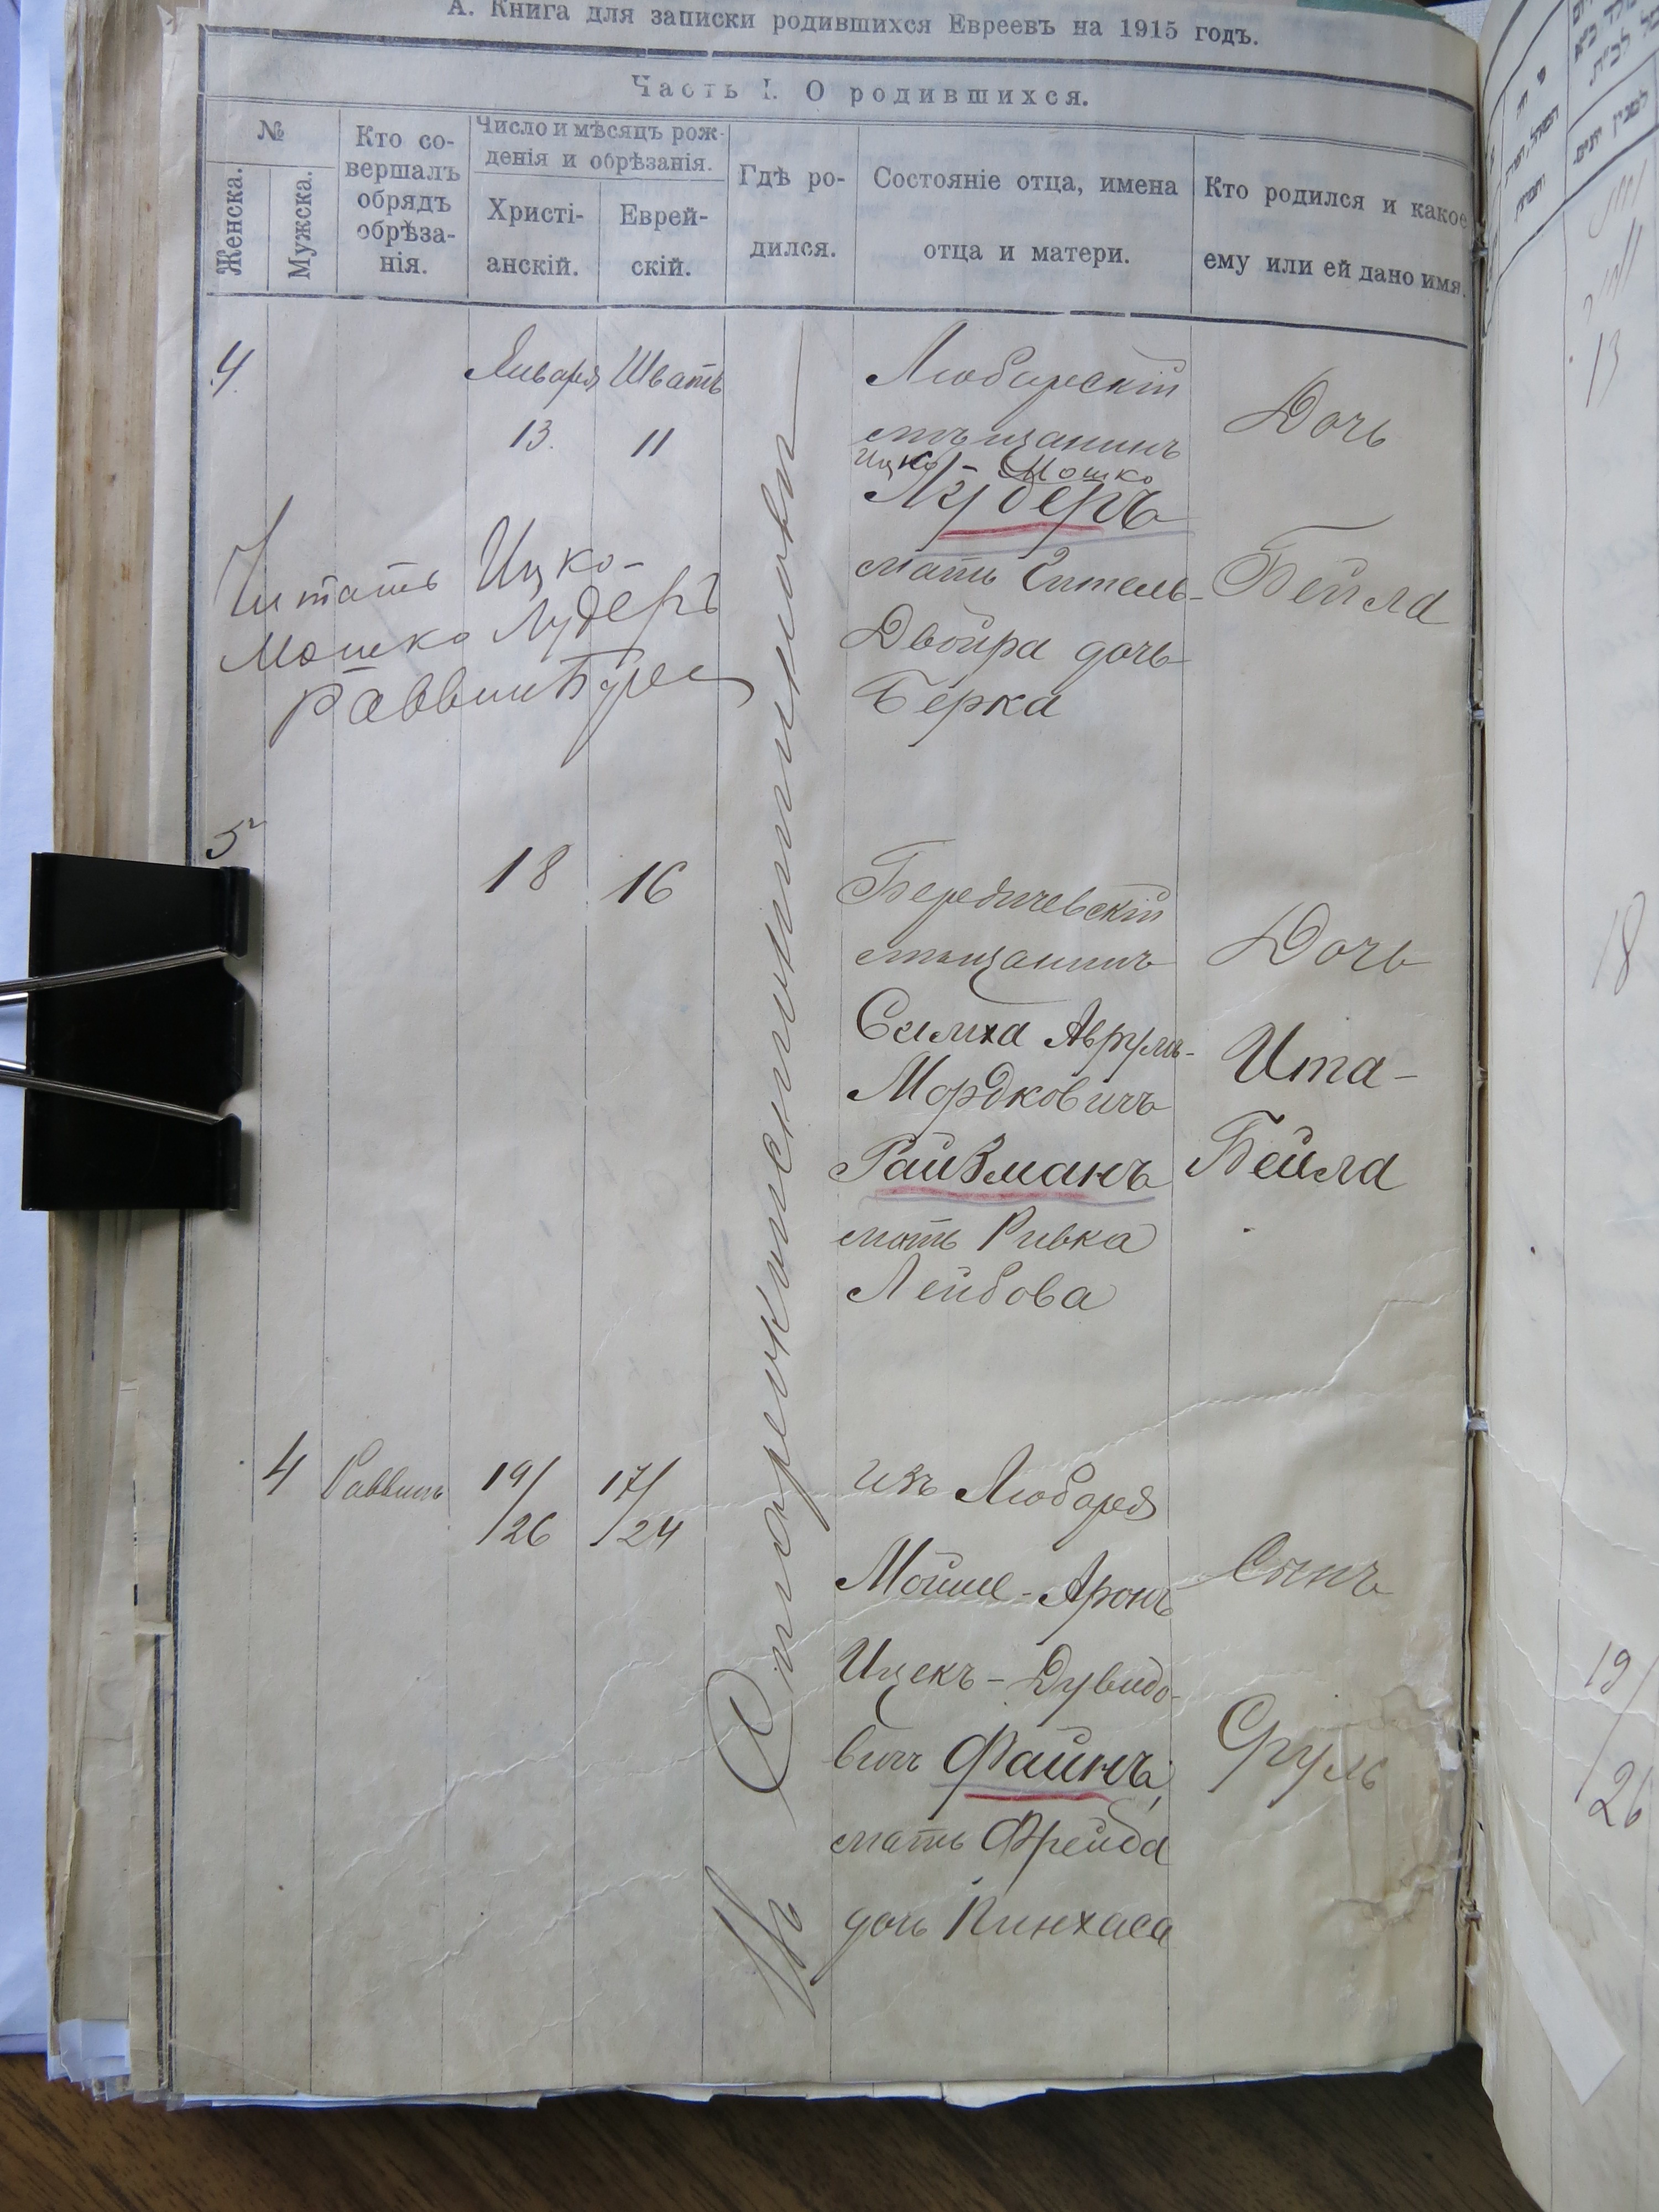 А. Книга для записки родившихся Евреевъ на 1915 годъ.
Часть I. О родившихся.
№
Женска.
Мужска.
Кто со-
вершалъ
обрядъ
обрѣза-
нія.
Число и мѣсяцъ рож-
денія и обрѣзанія.
Христі-
анскій.
Еврей-
скій.
Гдѣ ро-
дился.
Состояніе отца, имена
отца и матери.
Кто родился и какое
ему или ей дано имя.
4
Января
13.
Шватъ
11
Любарскій
мѣщанинъ
Ицко-Мошко
Лудеръ
мать Ентель-
Двойра дочь
Берка
Дочь
Бейла
Читать Ицко-
Мошко Лудеръ
Раввинъ
5
18
16
Бердичевскій
мѣщанинъ
Симха Аврумъ-
Мордковичъ
Райзманъ
мать Ривка
Лейбова
Дочь
Ита-
Бейла
4
Раввинъ
19/
/26
17/
/24
изъ Любаря
Мойше-Аронъ
Ицекъ-Дувидо-
вичъ Файнъ,
мать Фрейда
дочь Пинхаса
Сынъ
Сруль
18
19/
26